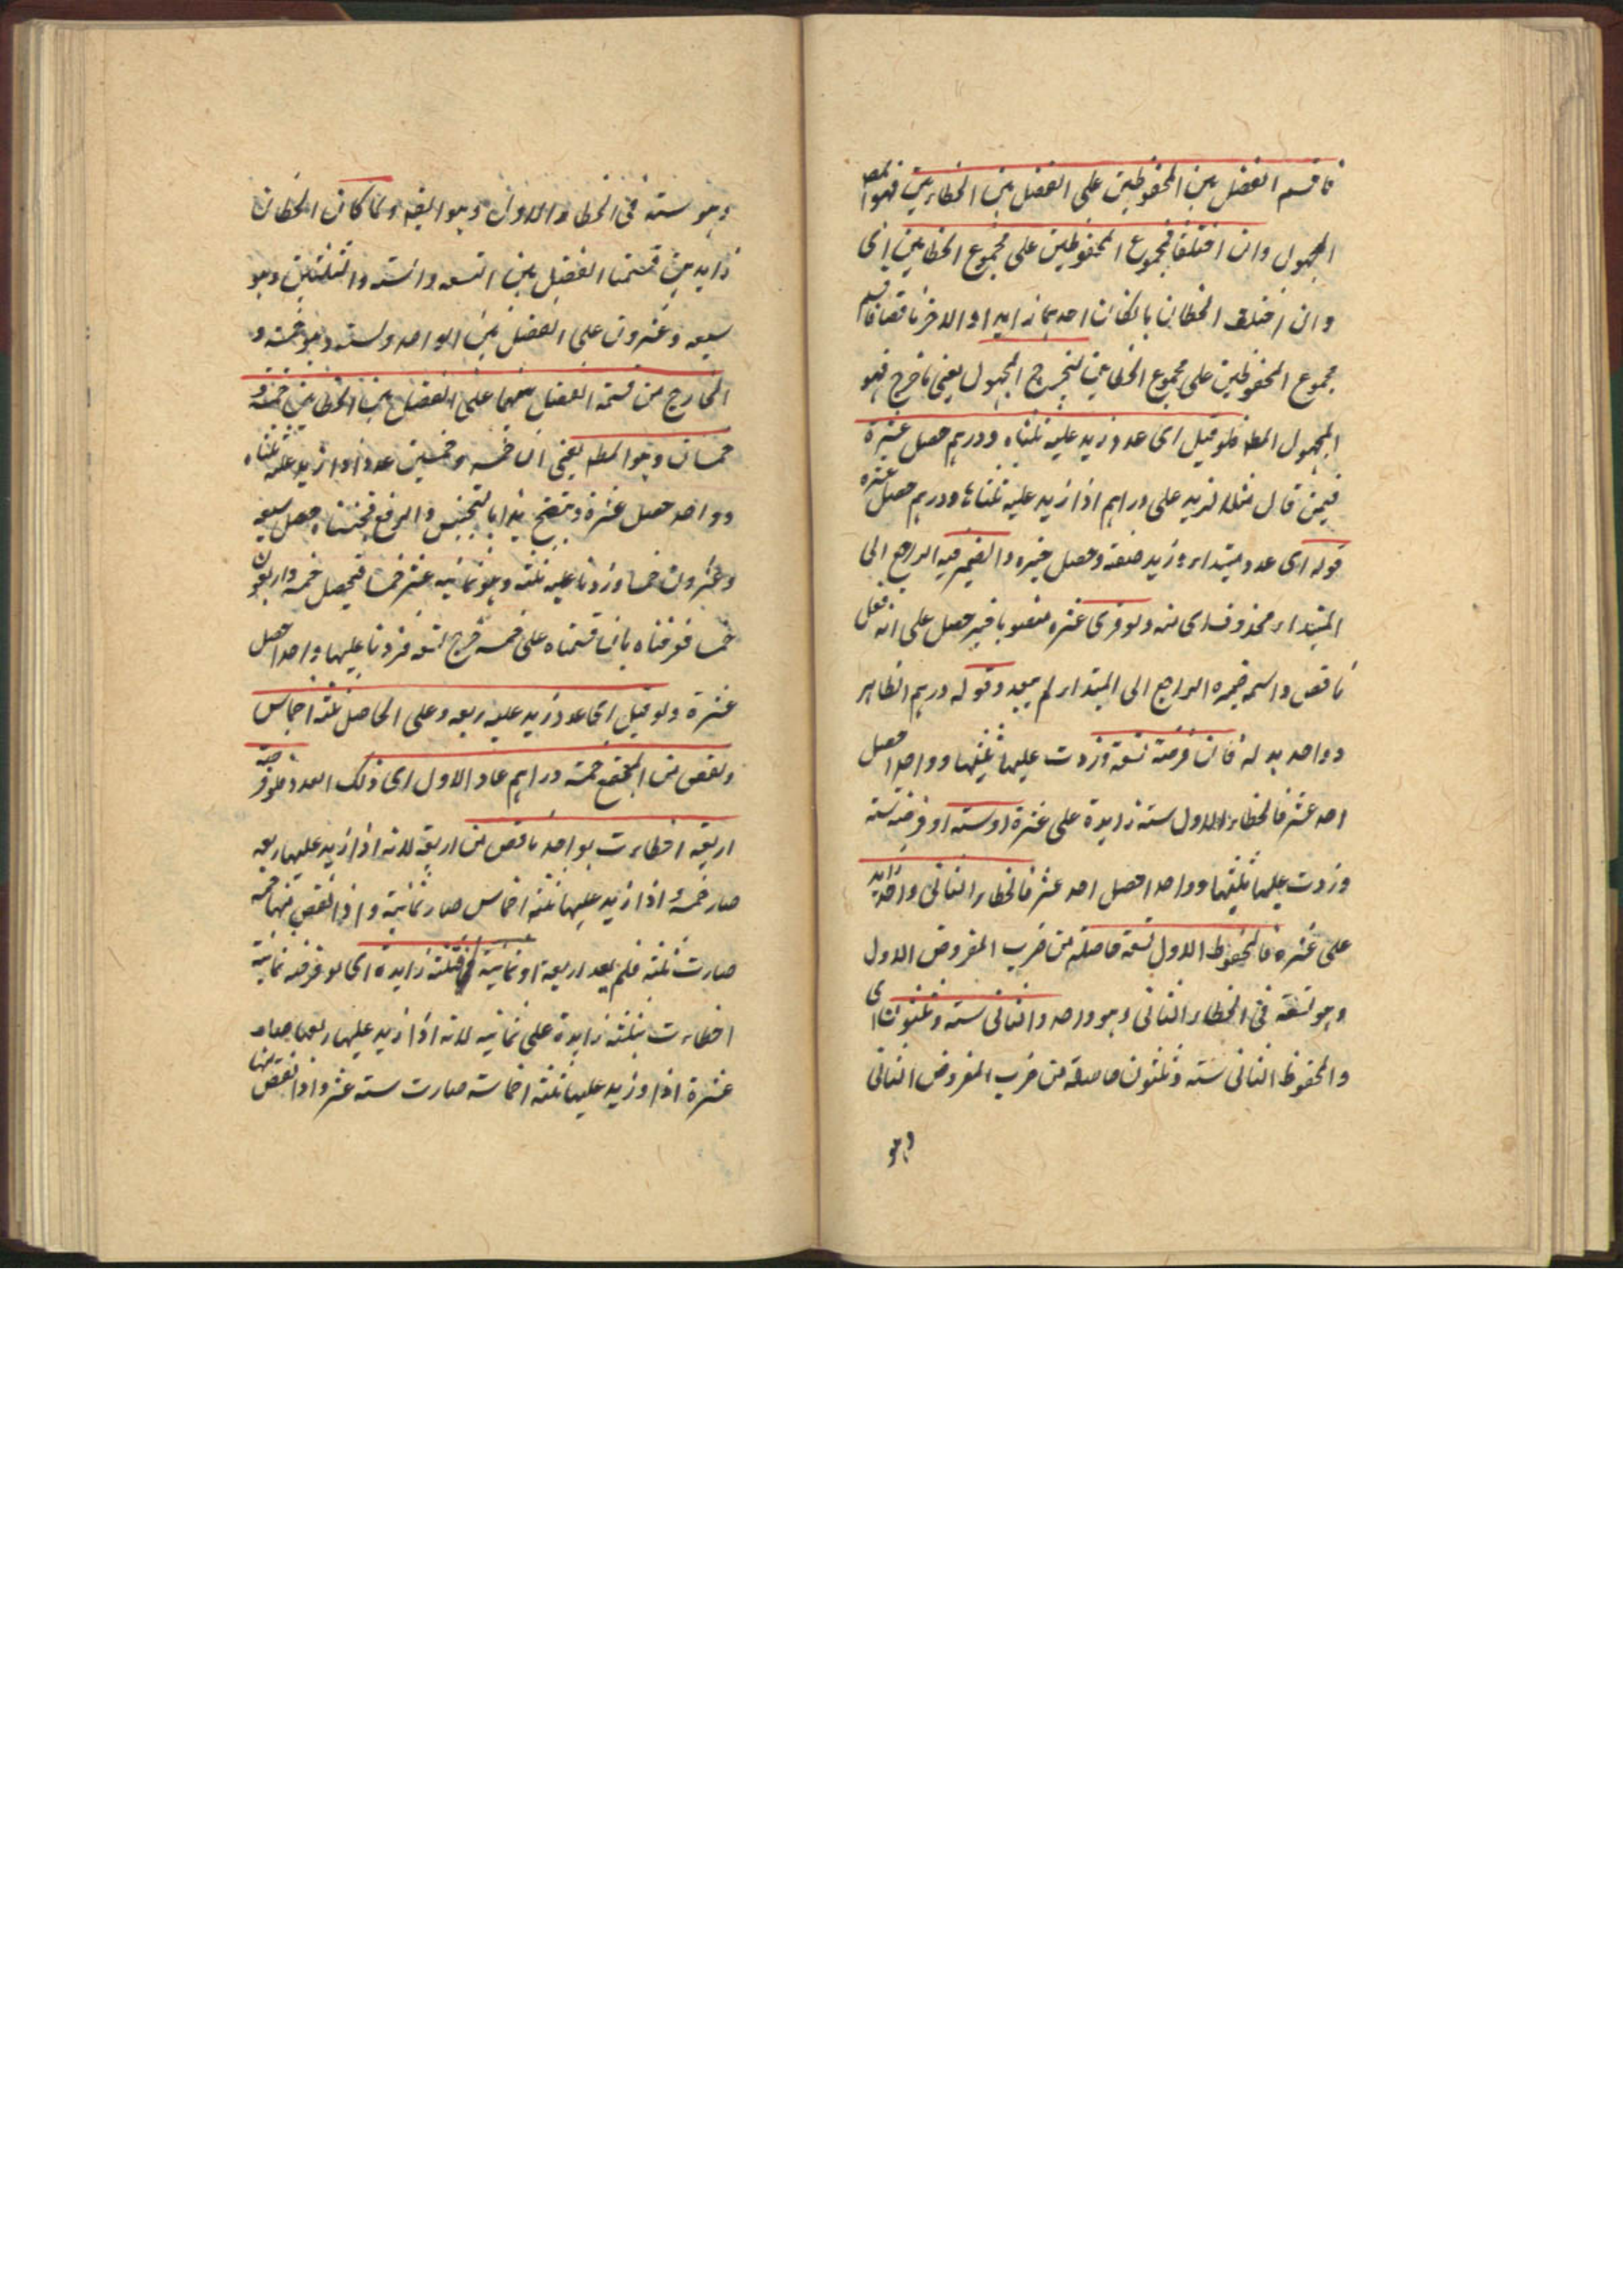 فاقسم الفضل بين المحفوظين على الفضل بين الخطاءين فهو المط
المجهول وان اختلفا فمجموع المحفوظين على مجموع الخطاءين اى
وان اختلف الخطاان بان كان احدهما زايدا والاخر ناقصا فاقسم
مجموع المحفوظين على مجموع الخطاءين ليخرج المجهول يعنى ما خرج فهو
المجهول المط فلو قيل اى عدد زيد عليه ثلثاه ودرهم حصل عشرة
فيمن قال مثلا لزيد على دراهم اذا زيد عليه ثلثاها ودرهم حصل عشره
قوله اى عدد مبتداء وزيد صفته وحصل خبره والضمير فيه الراجع الى
المبتداء محذوف اى منه ولو قرى عشره منصوبا فخبر حصل على انه فعل
ناقص واسمه ضميره الراجع الى المبتداء لم يبعد وقوله درهم الظاهر
وواحد بدله فان فرضته تسعة وزدت عليها ثلثيها وواحدا حصل
احد عشر فالخطاء الاول ستة زايدة على عشرة او ستة او فرضته ستة
وزدت عليها ثلثيها وواحدا حصل احد عشر فالخطاء الثانى واحد زايد
على عشره فالمحفوظ الاول تسعة حاصلة من ضرب المفروض الاول
وهو تسعة فى الخطاء الثانى وهو واحد والثانى ستة وثلثون اى
والمحفوظ الثانى ستة وثلثون حاصلة من ضرب المفروض الثانى
وهو
وهو ستة فى الخطاء الاول وهو ايضا ولما كان الخطاان
زايدين قسمنا الفضل بين التسعه والسته والثلثين وهو
سبعه وعشرون على الفضل بين الواحد وسته وهو خمسه و
الخارج من قسمة الفضل بينهما على الفضل بين الخطاين خمسة و
خمسان وهو المط يعنى ان خمسه وخمسين عدد اذا زيد عليه ثلثاه
وواحد حصل عشرة ويتضح هذا بالتجنيس والرفع فجنسناه حصل سبعه
وعشرون خمسا وزدنا عليه ثلثيه وهو ثمانيه عشر خمسا فيحصل خمسه واربعون
خمسا فرفعناه بان قسمناه على خمسه خرج تسعه فزدنا عليها واحدا حصل
عشرة ولو قيل اى عدد زيد عليه ربعه وعلى الحاصل ثلثة اخماسه
ونقص من المجتمع خمسة دراهم عاد الاول اى ذلك العدد فلو فرضته
اربعه اخطاءت بواحد ناقص من اربعة لانه اذا زيد عليها ربعه
صار خمسة اذا زيد عليها ثلثة اخماس صار ثمانية واذا نقص منها خمسه
صارت ثلثه فلم يعد اربعة او ثمانية فثلثة زايدة اى لو فرضته ثمانية
اخطاءت بثلثة زايدة على ثمانيه لانه اذا زيد عليها ربعها صارت
عشرة اذا وزيد عليها ثلثة اخماسه صارت سته عشر واذا نقص منها